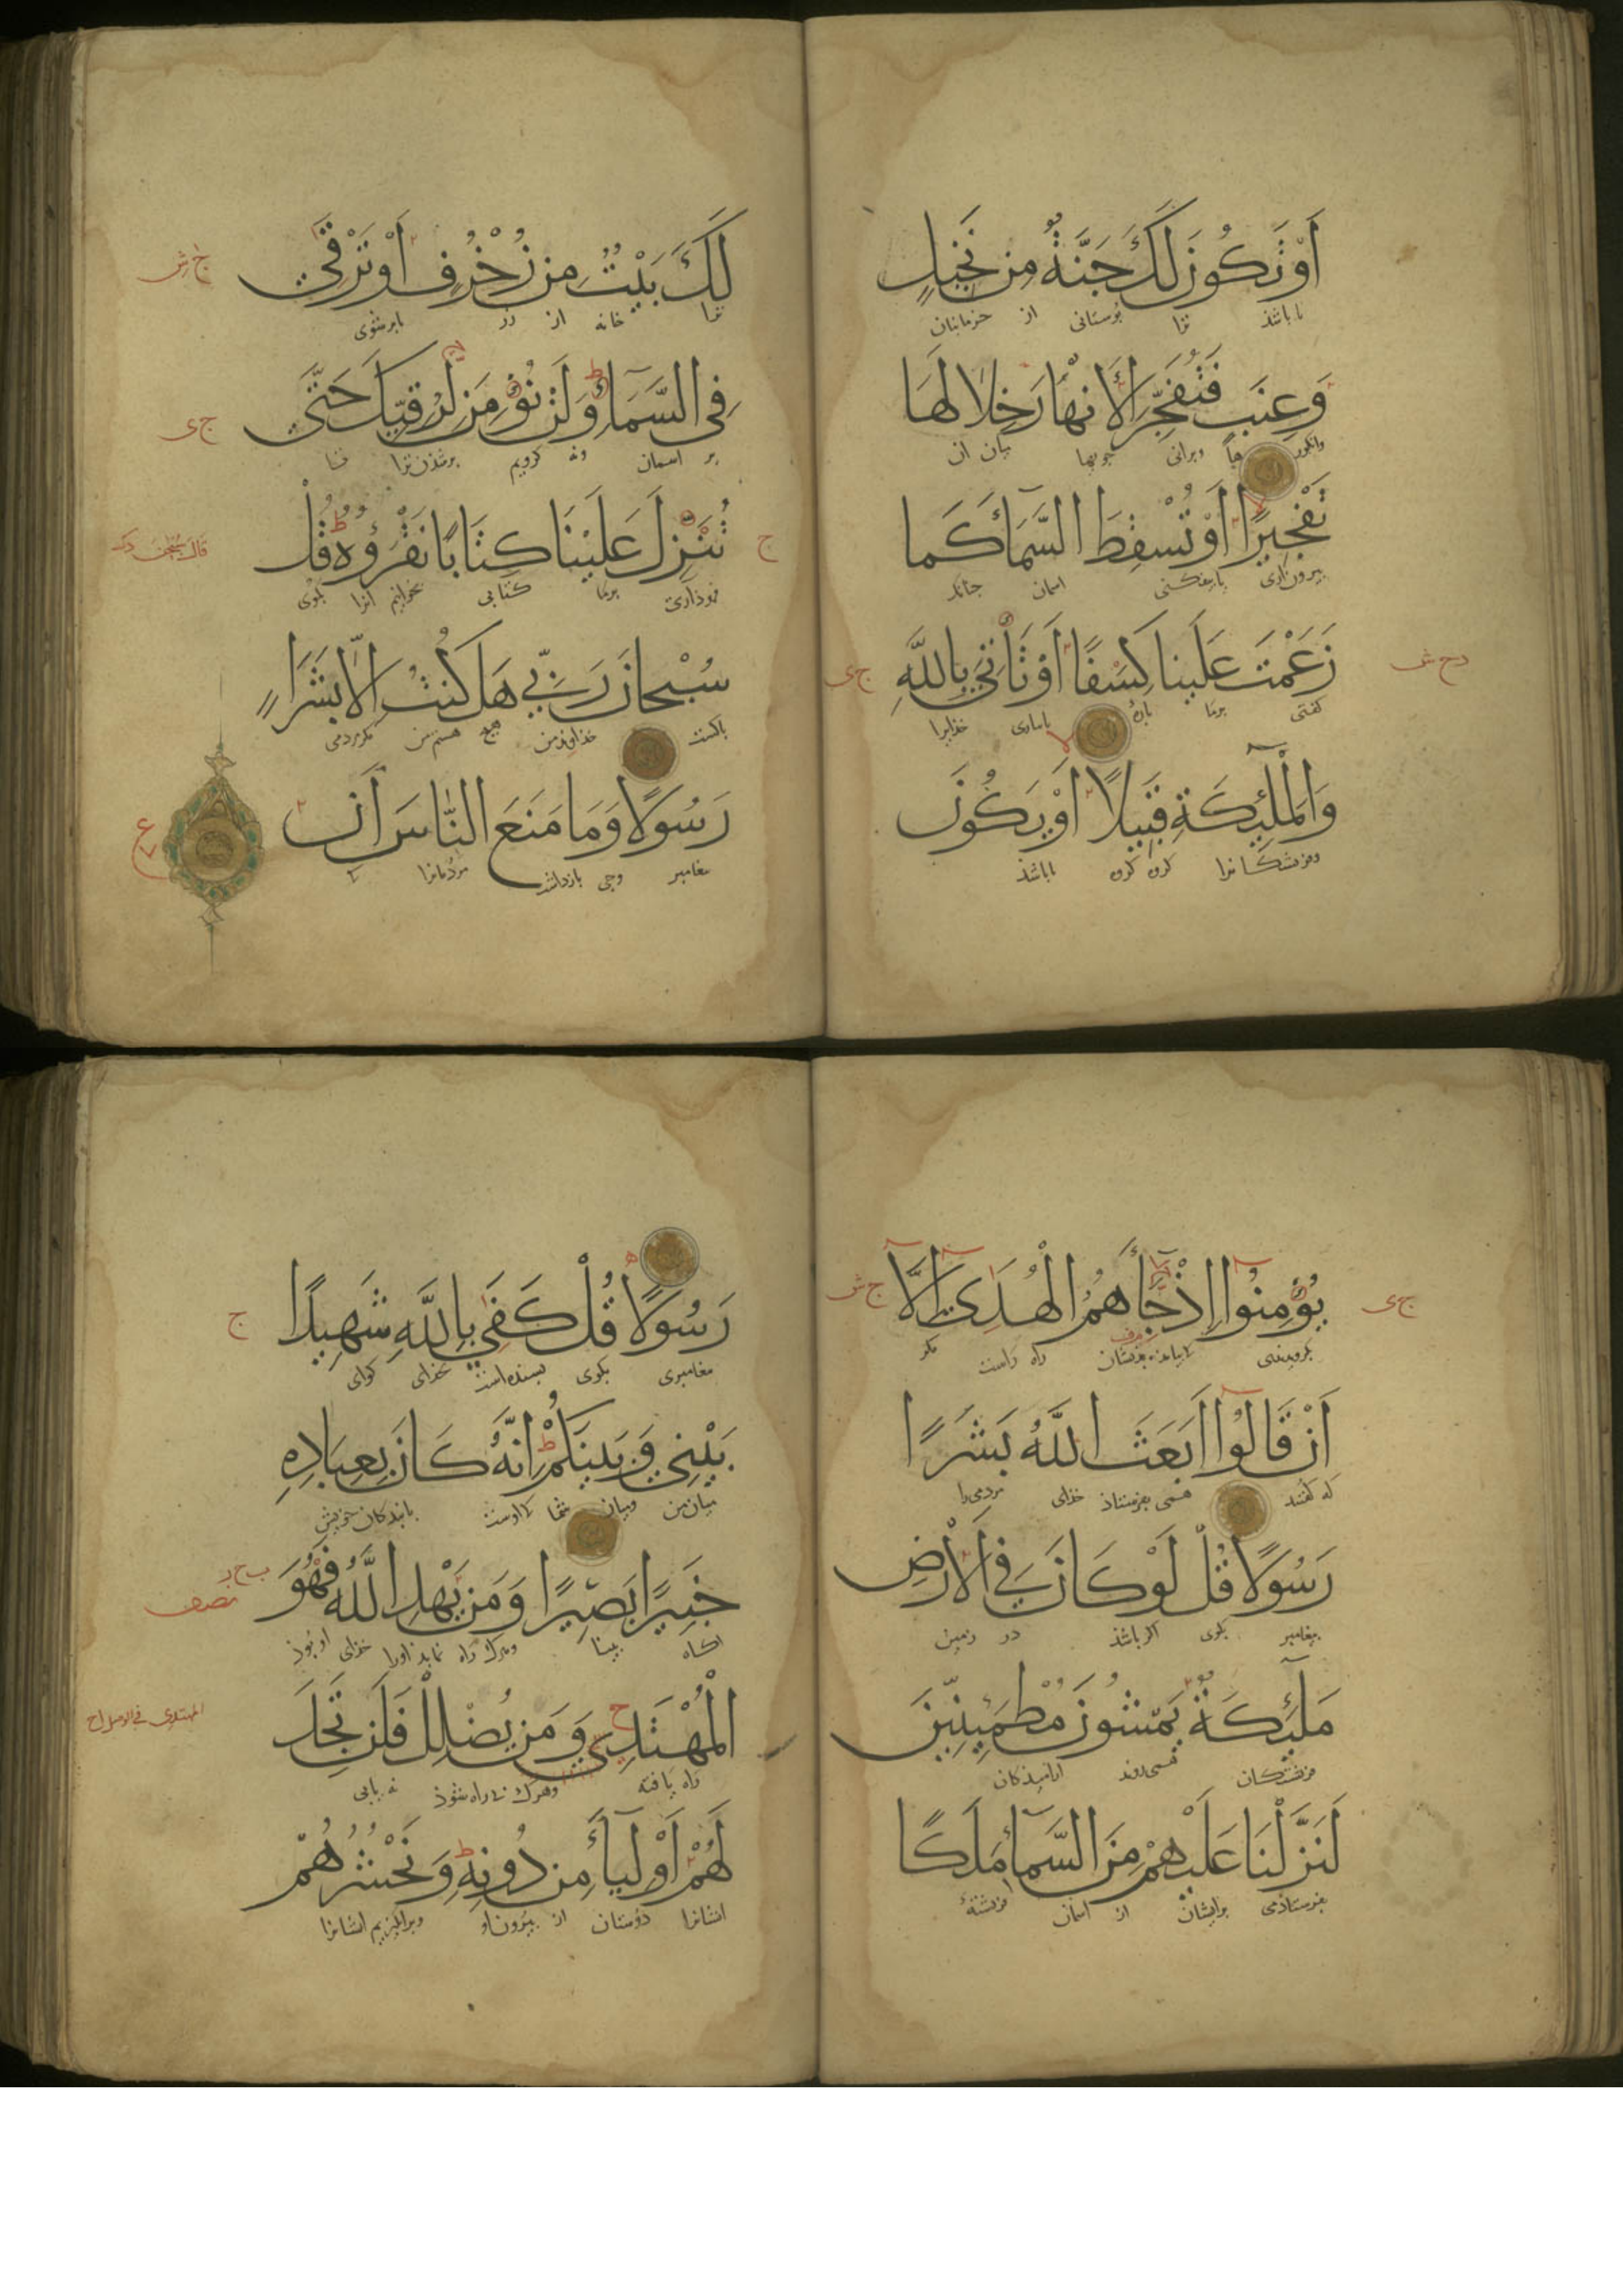 أَوْ تَكُونَ لَكَ جَنَّةٌ مِن نَخِيلٍ
یا باشذ ترا بوستانی از خرمابنان
وَعِنَبٍ فَتُفَجِّرَ الْأَنْهَارَ خِلَالَهَا
وانکورها وبرانی جویها میان آن
تَفْجِيرًا أَوْ تُسْقِطَ السَّمَاءَ كَمَا
یا بیفکنی اسمان چنانک
زَعَمْتَ عَلَيْنَا كِسَفًا أَوْ تَأْتِيَ بِاللَّهِ
کفتی برما پارهٔ یا بیاری خذایرا
وَالْمَلَئِكَةِ قَبِيلًا أَوْ يَكُونَ
وفرشتکانرا کروه کروه یا باشذ
ج ش
لَكَ بَيْتٌ مِن زُخْرُفٍ أَوْ تَرْقَى
ترا خانه از زر یا برشوی
فِي السَّمَاءِ وَلَن نُؤْمِنَ لِرُقِيِّكَ حَتَّى
ج ی
بر اسمان ونه کرویم برشذن ترا تا
تُنَزِّلَ عَلَيْنَا كِتَابًا نَقْرَؤُهُ قُلْ
ج
فروذاری برما کتابی بخوانیم انرا بکوی
سُبْحَانَ رَبِّي هَلْ كُنْتُ إِلَّا بَشَرًا
پاکست خذاوند من هیچ هستم من مکر مردمی
رَسُولًا وَمَا مَنَعَ النَّاسَ أَن
ع
پیغامبر وچی بازداشت مردمانرا
يُؤْمِنُوا إِذْ جَاءَهُمُ الْهُدَى إِلَّا
ج ی
ج ش
بکرویدندی راه راست مکر
أَنْ قَالُوا أَبَعَثَ اللَّهُ بَشَرًا
که کفتند همی بفرستاذ خذای مردمی را
رَسُولًا قُلْ لَوْ كَانَ فِي الْأَرْضِ
پیغامبر بکوی اکر باشذ در زمین
مَلَئِكَةٌ يَمْشُونَ مُطْمَئِنِّينَ
فرشتکان همی روند ارامیدکان
لَنَزَّلْنَا عَلَيْهِمْ مِنَ السَّمَاءِ مَلَكًا
بفرستاذمی برایشان از اسمان فرشتهٔ
رَسُولًا قُلْ كَفَى بِاللَّهِ شَهِيدًا
ج
پیغامبری بکوی بسنده است بخذای کوای
بَيْنِي وَبَيْنَكُمْ إِنَّهُ كَانَ بِعِبَادِهِ
میان من ومیان شما که اوست ببندکان خویش
خَبِيرًا بَصِيرًا وَمَن يَهْدِ اللَّهُ فَهُوَ
نصف
اکاه بینا وهرک راه نماید اورا خذای او بوذ
الْمُهْتَدِي وَمَن يُضْلِلْ فَلَن تَجِدَ
راه یافته وهرک بی راه شوذ نه یابی
لَهُمْ أَوْلِيَاءَ مِن دُونِهِ وَنَحْشُرُهُمْ
ایشانرا دوستان از بیرون او وبرانکیزیم ایشانرا